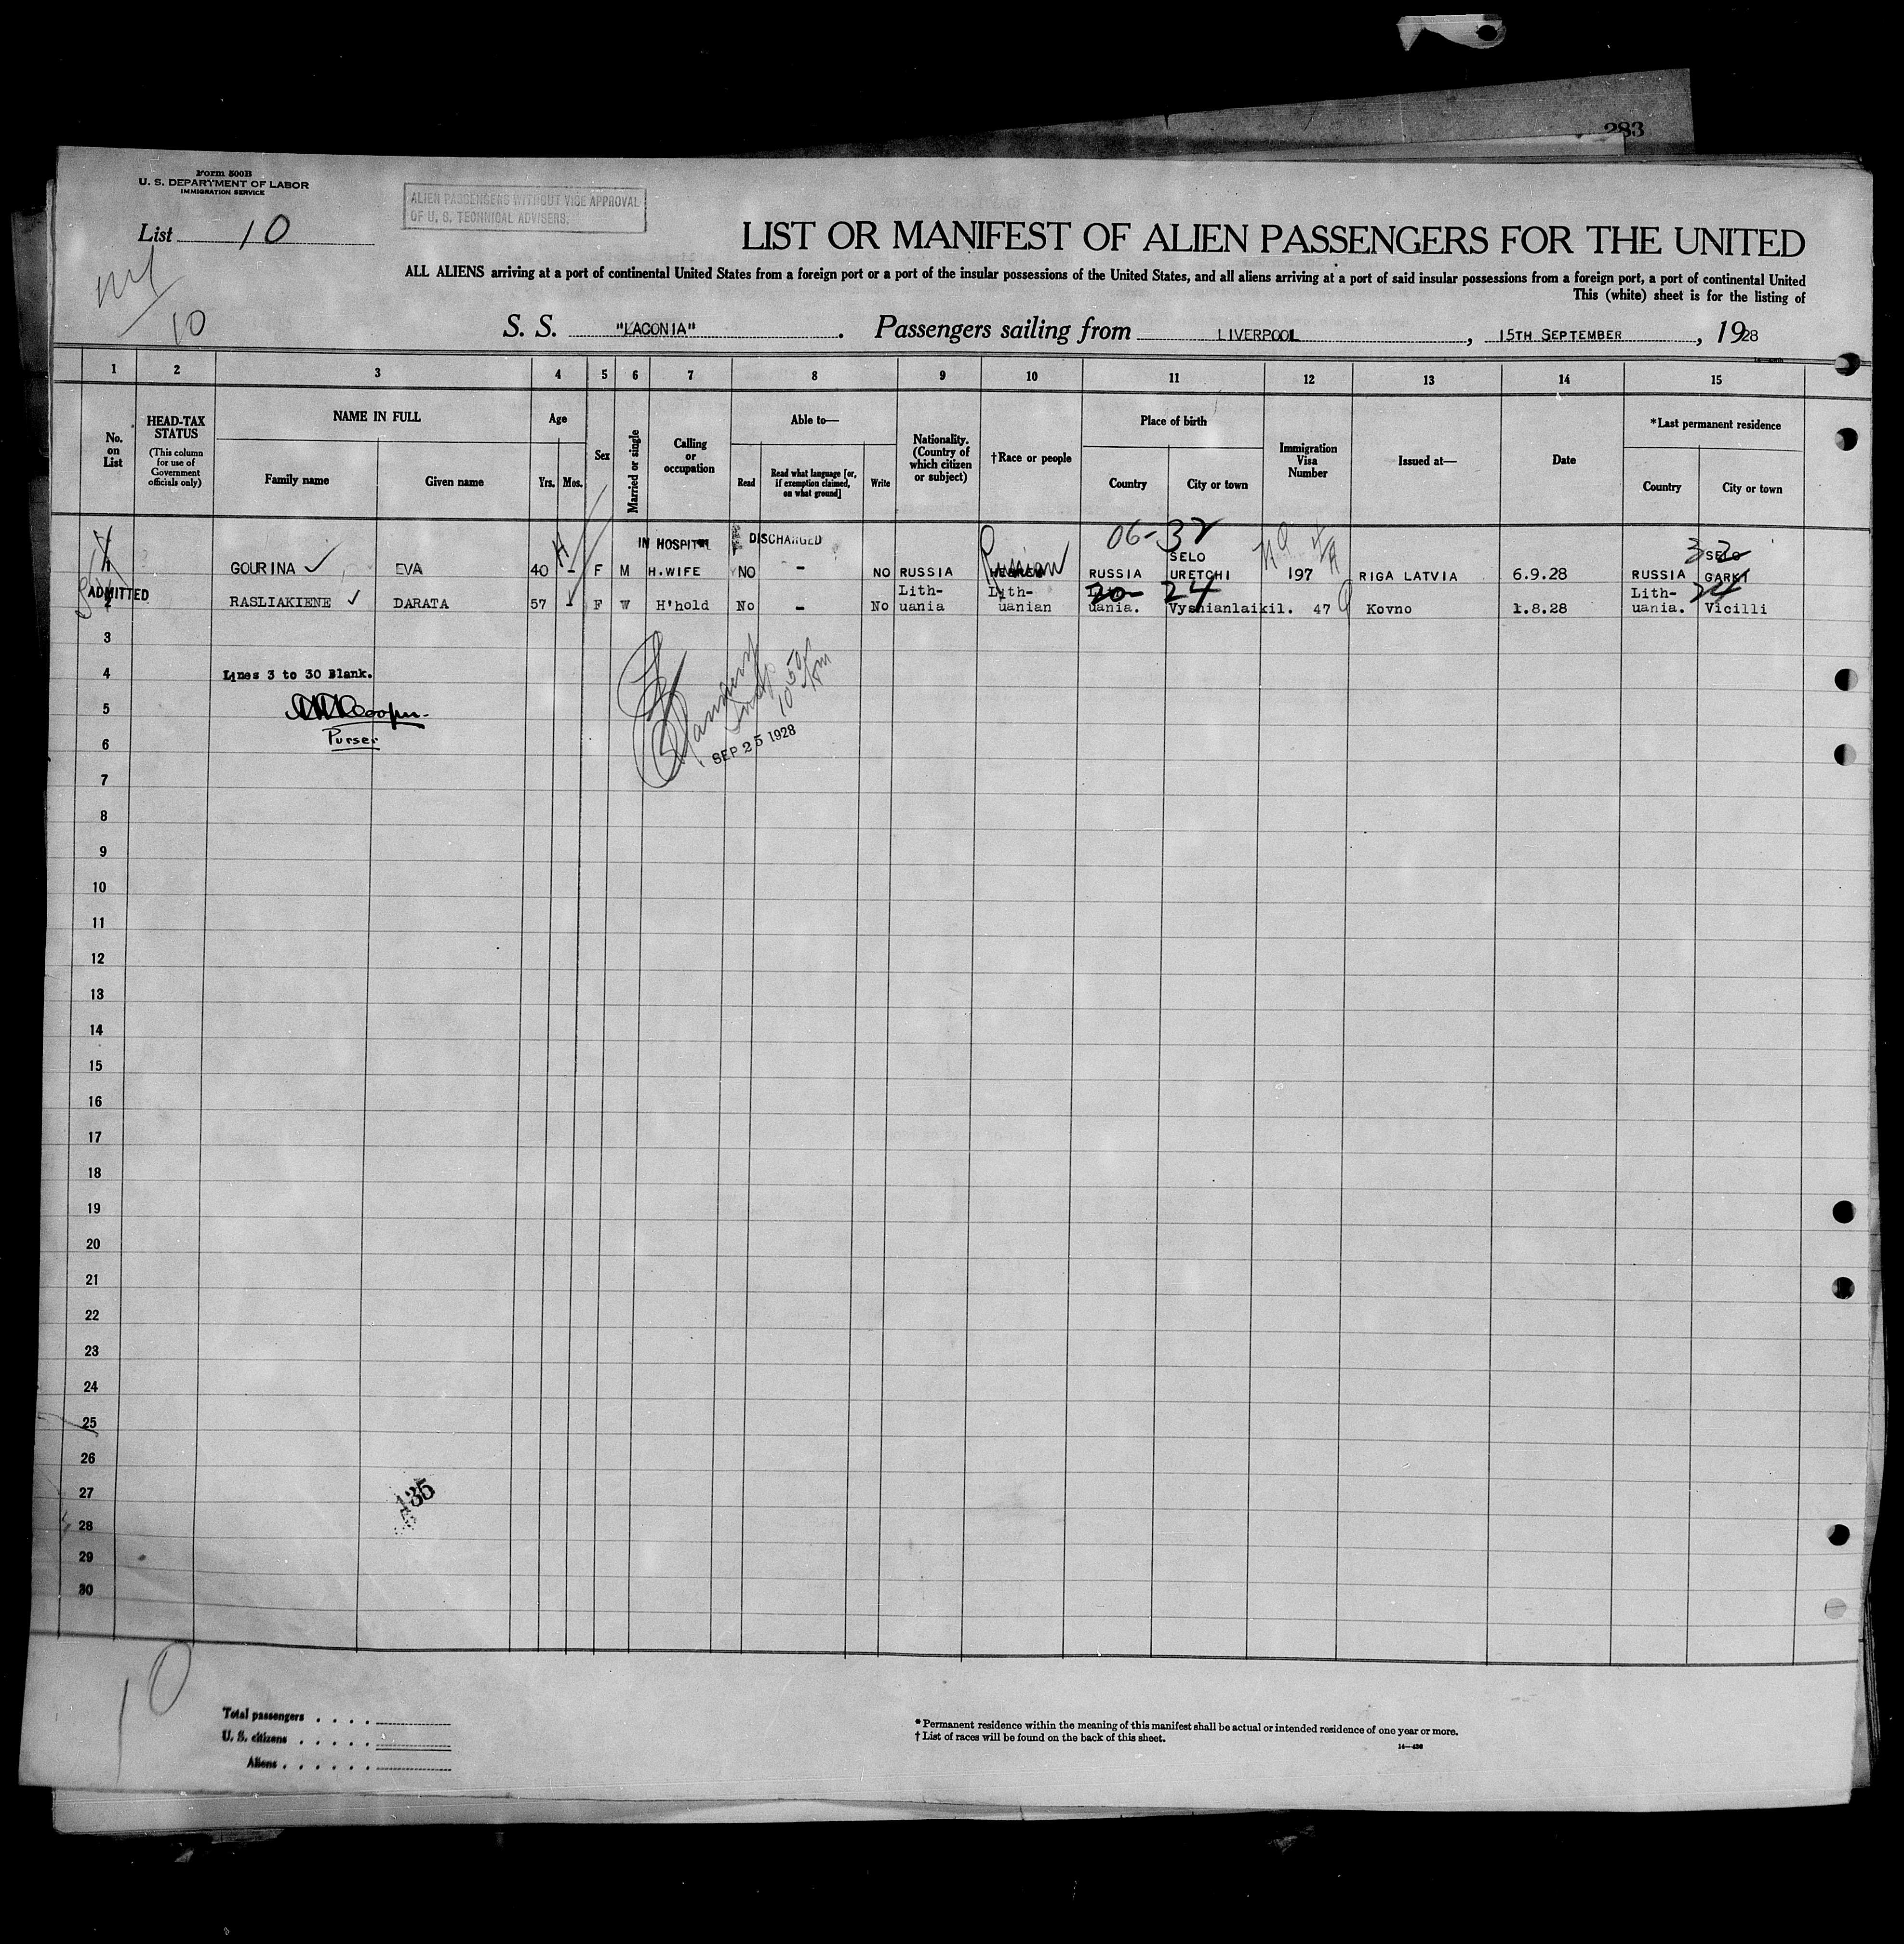 283
Form 500B
U. S. DEPARTMENT OF LABOR
IMMIGRATION SERVICE
ALIEN PASSENGERS WITHOUT VISE APPROVAL
OF U. S. TECHNICAL ADVISERS.
List 10
LIST OR MANIFEST OF ALIEN PASSENGERS FOR THE UNITED
ALL ALIENS arriving at a port of continental United States from a foreign port or a port of the insular possessions of the United States, and all aliens arriving at a port of said insular possessions from a foreign port, a port of continental United
This (white) sheet is for the listing of
10
S. S. "LACONIA". Passengers sailing from LIVERPOOL, 15TH SEPTEMBER, 1928
1 2 3 4 5 6 7 8 9 10 11 12 13 14 15
No. on List
HEAD-TAX STATUS
(This column for use of Government officials only)
NAME IN FULL
Family name Given name
Age
Yrs. Mos.
Sex
Married or single
Calling or occupation
Able to—
Read
Read what language [or, if exemption claimed, on what ground]
Write
Nationality. (Country of which citizen or subject)
†Race or people
Place of birth
Country City or town
Immigration Visa Number
Issued at—
Date
*Last permanent residence
Country City or town
IN HOSPITAL DISCHARGED 06-32
SELO 32 SELO
1 GOURINA EVA 40 - F M H.WIFE NO - NO RUSSIA Russian RUSSIA URETCHI 197 RIGA LATVIA 6.9.28 RUSSIA GARKI
ADMITTED
Lith- Lith- 20- 24 Lith- 24
2 RASLIAKIENE DARATA 57 - F W H'hold No - No uania uanian uania. Vyshianlaikil. 47 Kovno 1.8.28 uania. Vicilli
3
4 Lines 3 to 30 Blank.
5
Purser
6
SEP 25 1928
7
8
9
10
11
12
13
14
15
16
17
18
19
20
21
22
23
24
25
26
27
135
28
29
30
10
Total passengers . . . .
U. S. citizens . . . . .
Aliens . . . . . .
* Permanent residence within the meaning of this manifest shall be actual or intended residence of one year or more.
† List of races will be found on the back of this sheet.
14—436